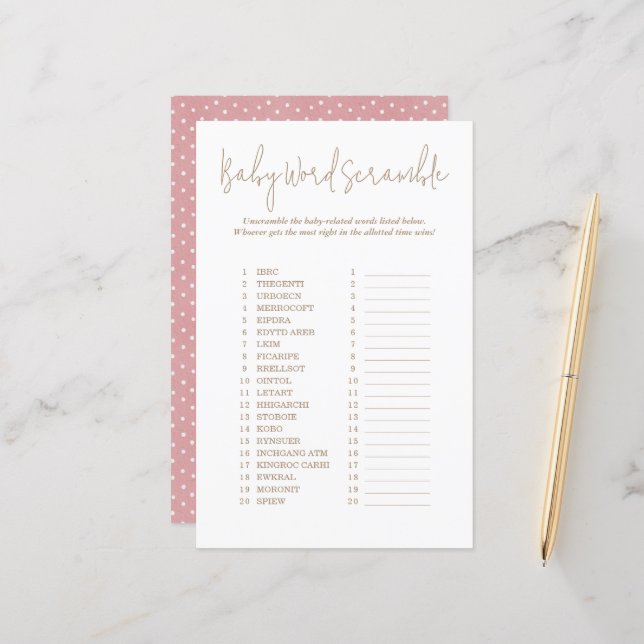 Baby Word Scramble
Unscramble the baby-related words listed below.
Whoever gets the most right in the allotted time wins!
1 IBRC 1
2 THEGENTI 2
3 URBOECN 3
4 MERROCOFT 4
5 EIPDRA 5
6 EDYTD AREB 6
7 LKIM 7
8 FICARIPE 8
9 RRELLSOT 9
10 OINTOL 10
11 LETART 11
12 HHIGARCHI 12
13 STOBOIE 13
14 KOBO 14
15 RYNSUER 15
16 INCHGANG ATM 16
17 KINGROC CARHI 17
18 EWKRAL 18
19 MORONIT 19
20 SPIEW 20